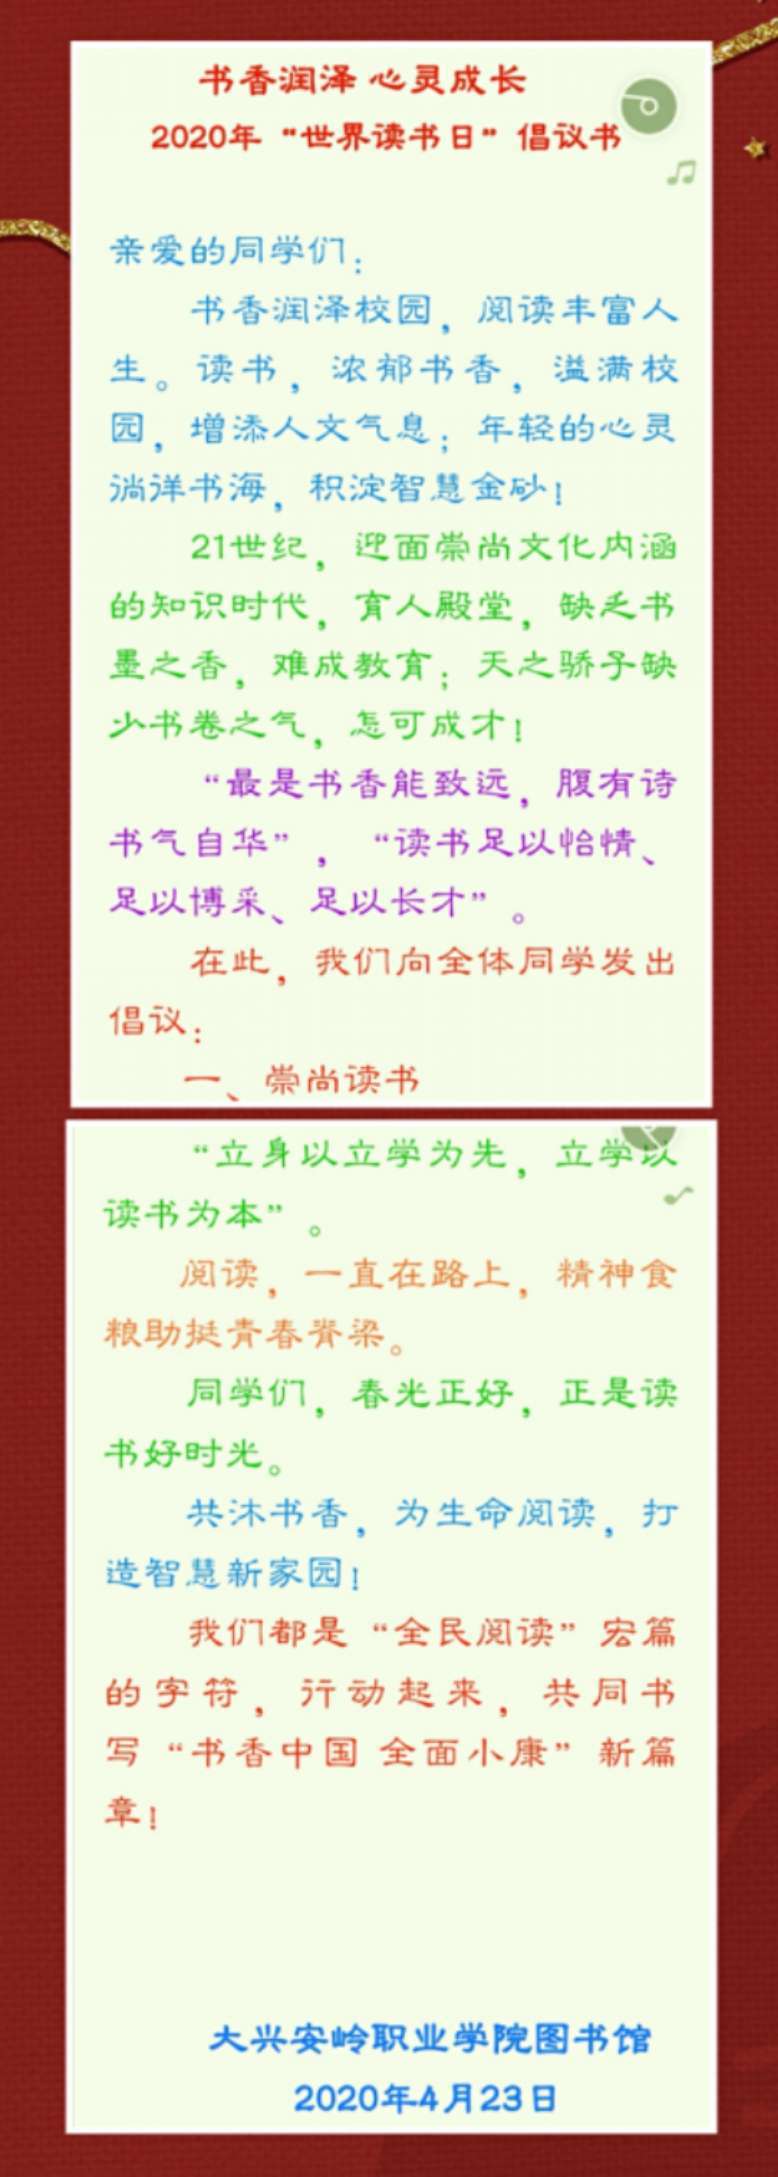 书香润泽 心灵成长
2020年“世界读书日”倡议书
亲爱的同学们：
书香润泽校园，阅读丰富人
生。读书，浓郁书香，溢满校
园，增添人文气息；年轻的心灵
淌洋书海，积淀智慧金砂！
21世纪，迎面崇尚文化内涵
的知识时代，育人殿堂，缺乏书
墨之香，难成教育；天之骄子缺
少书卷之气，怎可成才！
“最是书香能致远，腹有诗
书气自华”，“读书足以怡情、
足以博采、足以长才”。
在此，我们向全体同学发出
倡议：
一、崇尚读书
“立身以立学为先，立学以
读书为本”。
阅读，一直在路上，精神食
粮助挺青春脊梁。
同学们，春光正好，正是读
书好时光。
共沐书香，为生命阅读，打
造智慧新家园！
我们都是“全民阅读”宏篇
的字符，行动起来，共同书
写“书香中国 全面小康”新篇
章！
大兴安岭职业学院图书馆
2020年4月23日